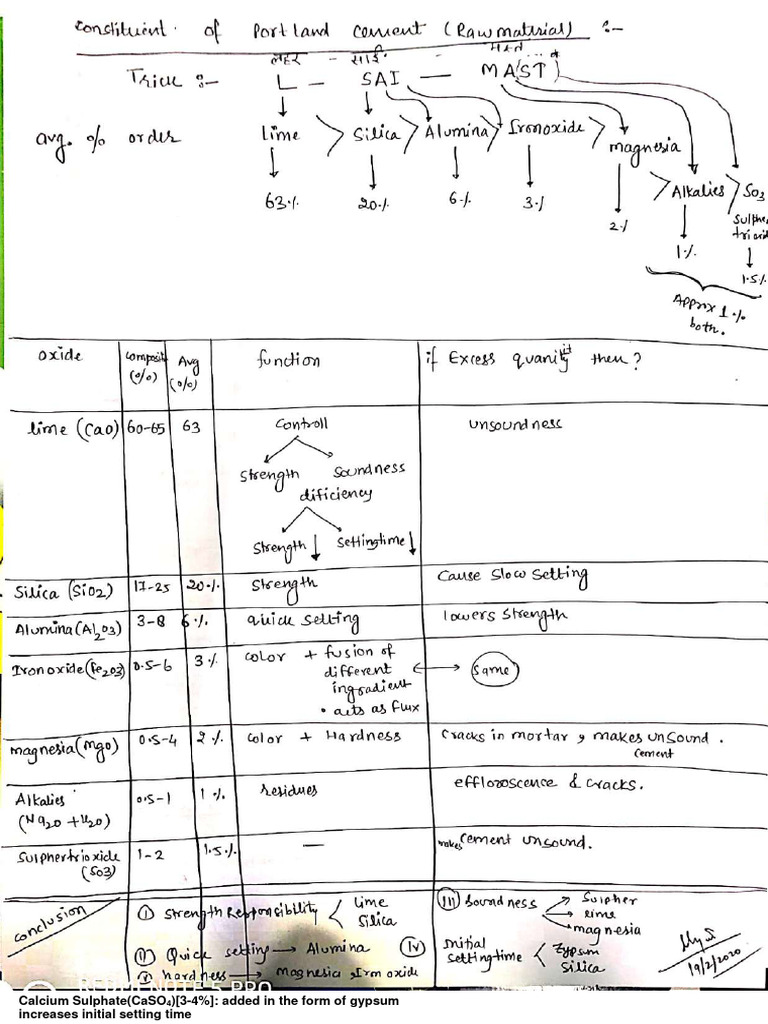 Constituent of Portland cement (Raw material) :-
लहर - साई -
Trick :- L - SAI - MAST
avg. % order
lime > Silica > Alumina > Iron oxide > magnesia > Alkalies > SO3
Sulpher
trioxid
63% 20% 6% 3% 2% 1% 1.5%
Approx 1%
both.
oxide composit (%) Avg (%) function if Excess quanitity then?
lime (CaO) 60-65 63 Controll unsoundness
Strength Soundness
dificiency
Strength ↓ Setting time ↓
Silica (SiO2) 17-25 20% Strength Cause Slow Setting
Alumina (Al2O3) 3-8 6% quick setting lowers strength
Iron oxide (Fe2O3) 0.5-6 3% color + fusion of different ingradient ↔ Same
• acts as flux
magnesia (MgO) 0.5-4 2% color + Hardness Cracks in mortar, makes unsound.
cement
Alkalies 0.5-1 1% Residues effloroscence & cracks.
Sulphertrioxide (SO3) 1-2 1.5% — makes cement unsound.
conclusion
(i) Strength Responsibility < lime
Silica
(ii) Quick setting → Alumina
(v) hardness → magnesia, Irm oxide
(iii) Soundness → Sulpher
→ lime
→ magnesia
(iv) Initial setting time < Zypsum
Silica
19/2/2020
Calcium Sulphate(CaSO4)[3-4%]: added in the form of gypsum
increases initial setting time